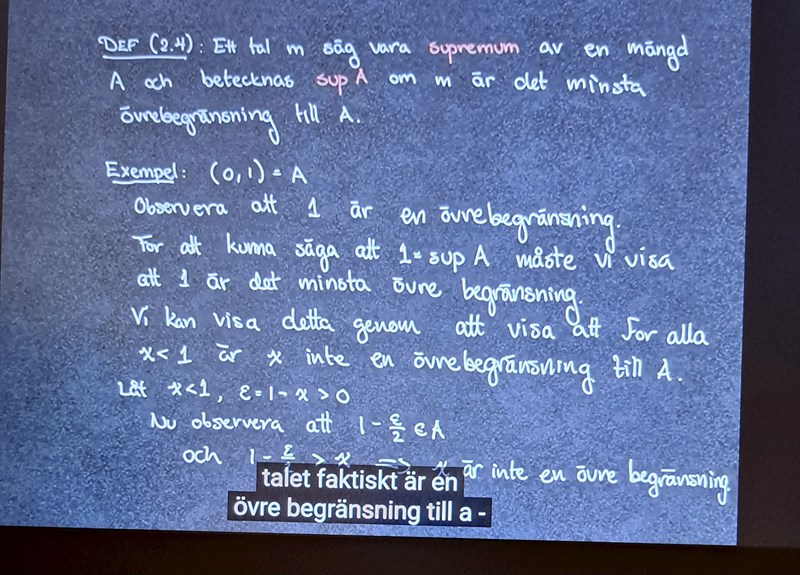 DEF (2.4): Ett tal m säg vara supremum av en mängd
A och betecknas sup A om m är det minsta
övrebegränsning till A.
Exempel: (0,1) = A
Observera att 1 är en övrebegränsning.
For att kunna säga att 1 = sup A måste vi visa
att 1 är det minsta övre begränsning.
Vi kan visa detta genom att visa att for alla
x < 1 är x inte en övrebegränsning till A.
Låt x<1, ε = 1 - x > 0
Nu observera att 1 - ε/2 ∈ A
och 1 - ε > x => x är inte en övre begränsning
talet faktiskt är en
övre begränsning till a -